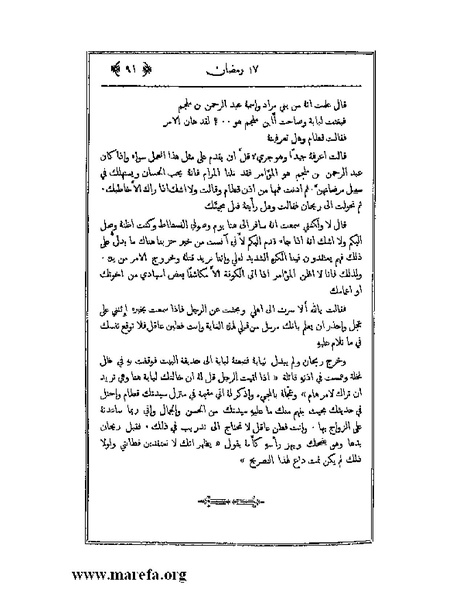 ﴿ ٩١ ﴾ ١٧ رمضان
قال علمت انه من بني مراد واسمه عبد الرحمن بن ملجم
فبغتت لبابة وصاحت أابن ملجم هو ٠٠؟ لقد هان الامر
فقالت قطام وهل تعرفينه
قالت اعرفه جيدًا وهو جريء قلَّ ان يقدم على مثل هذا العمل سواه واذا كان
عبد الرحمن بن ملجم هو المؤامر فقد نلنا المرام فانه يحب الحسان ويستهلك في
سبيل مرضاتهن ثم ادنت فمها من اذن قطام وقالت ولا اشك انه اذا راك الا خاطبك
ثم تحولت الى ريحان فقالت وهل رأيته قبل مجيئك
قال لا ولكنني سمعت انه سافر الى هنا يوم وصولي الفسطاط وكنت اظنه وصل
اليكم ولا اشك انه اذا جاء قدم اليكم لأني آنست من خبر حزبنا هناك ما يدلُّ على
ذلك فهم يعتقدون فينا الكره الشديد لعلي واننا نريد قتله وخروج الامر من يده
ولذلك فانا لا اظن المؤامر اذا اتى الكوفة الا مكاشفًا بعض اسيادي من اخوتك
او اعمامك
فقالت بالله ألا سرت الى اهلي وبحثت عن الرجل فاذا سمعت بخبره إئتني على
عجل واحذر ان يعلم بانك مرسل من قبلي لهذه الغاية وانت فطين عاقل فلا توقع نفسك
في ما نلام عليه
وخرج ريحان ولم يبدل ثيابه فتبعته لبابة الى حديقة البيت فوقفت به في ظل
نخلة وهمست في اذنه قائلة « اذا لقيت الرجل قل له ان خالتك لبابة هنا وهي تريد
ان تراك لامر هام » وعجّله بالمجيء واذكر له اني مقيمة في منزل سيدتك قطام واحتل
في حديثك بحيث يفهم منك ما عليه سيدتك من الحسن والجمال وإني ربما ساعدته
على الزواج بها ٠ وانت فطن عاقل لا تحتاج الى تدريب في ذلك ٠ فقبل ريحان
يدها وهو يضحك ويهز رأسه كأنه يقول « يظهر انك لا تعتقدين فطانتي ولولا
ذلك لم يكن ثمت داعٍ لهذا التصريح »
www.marefa.org